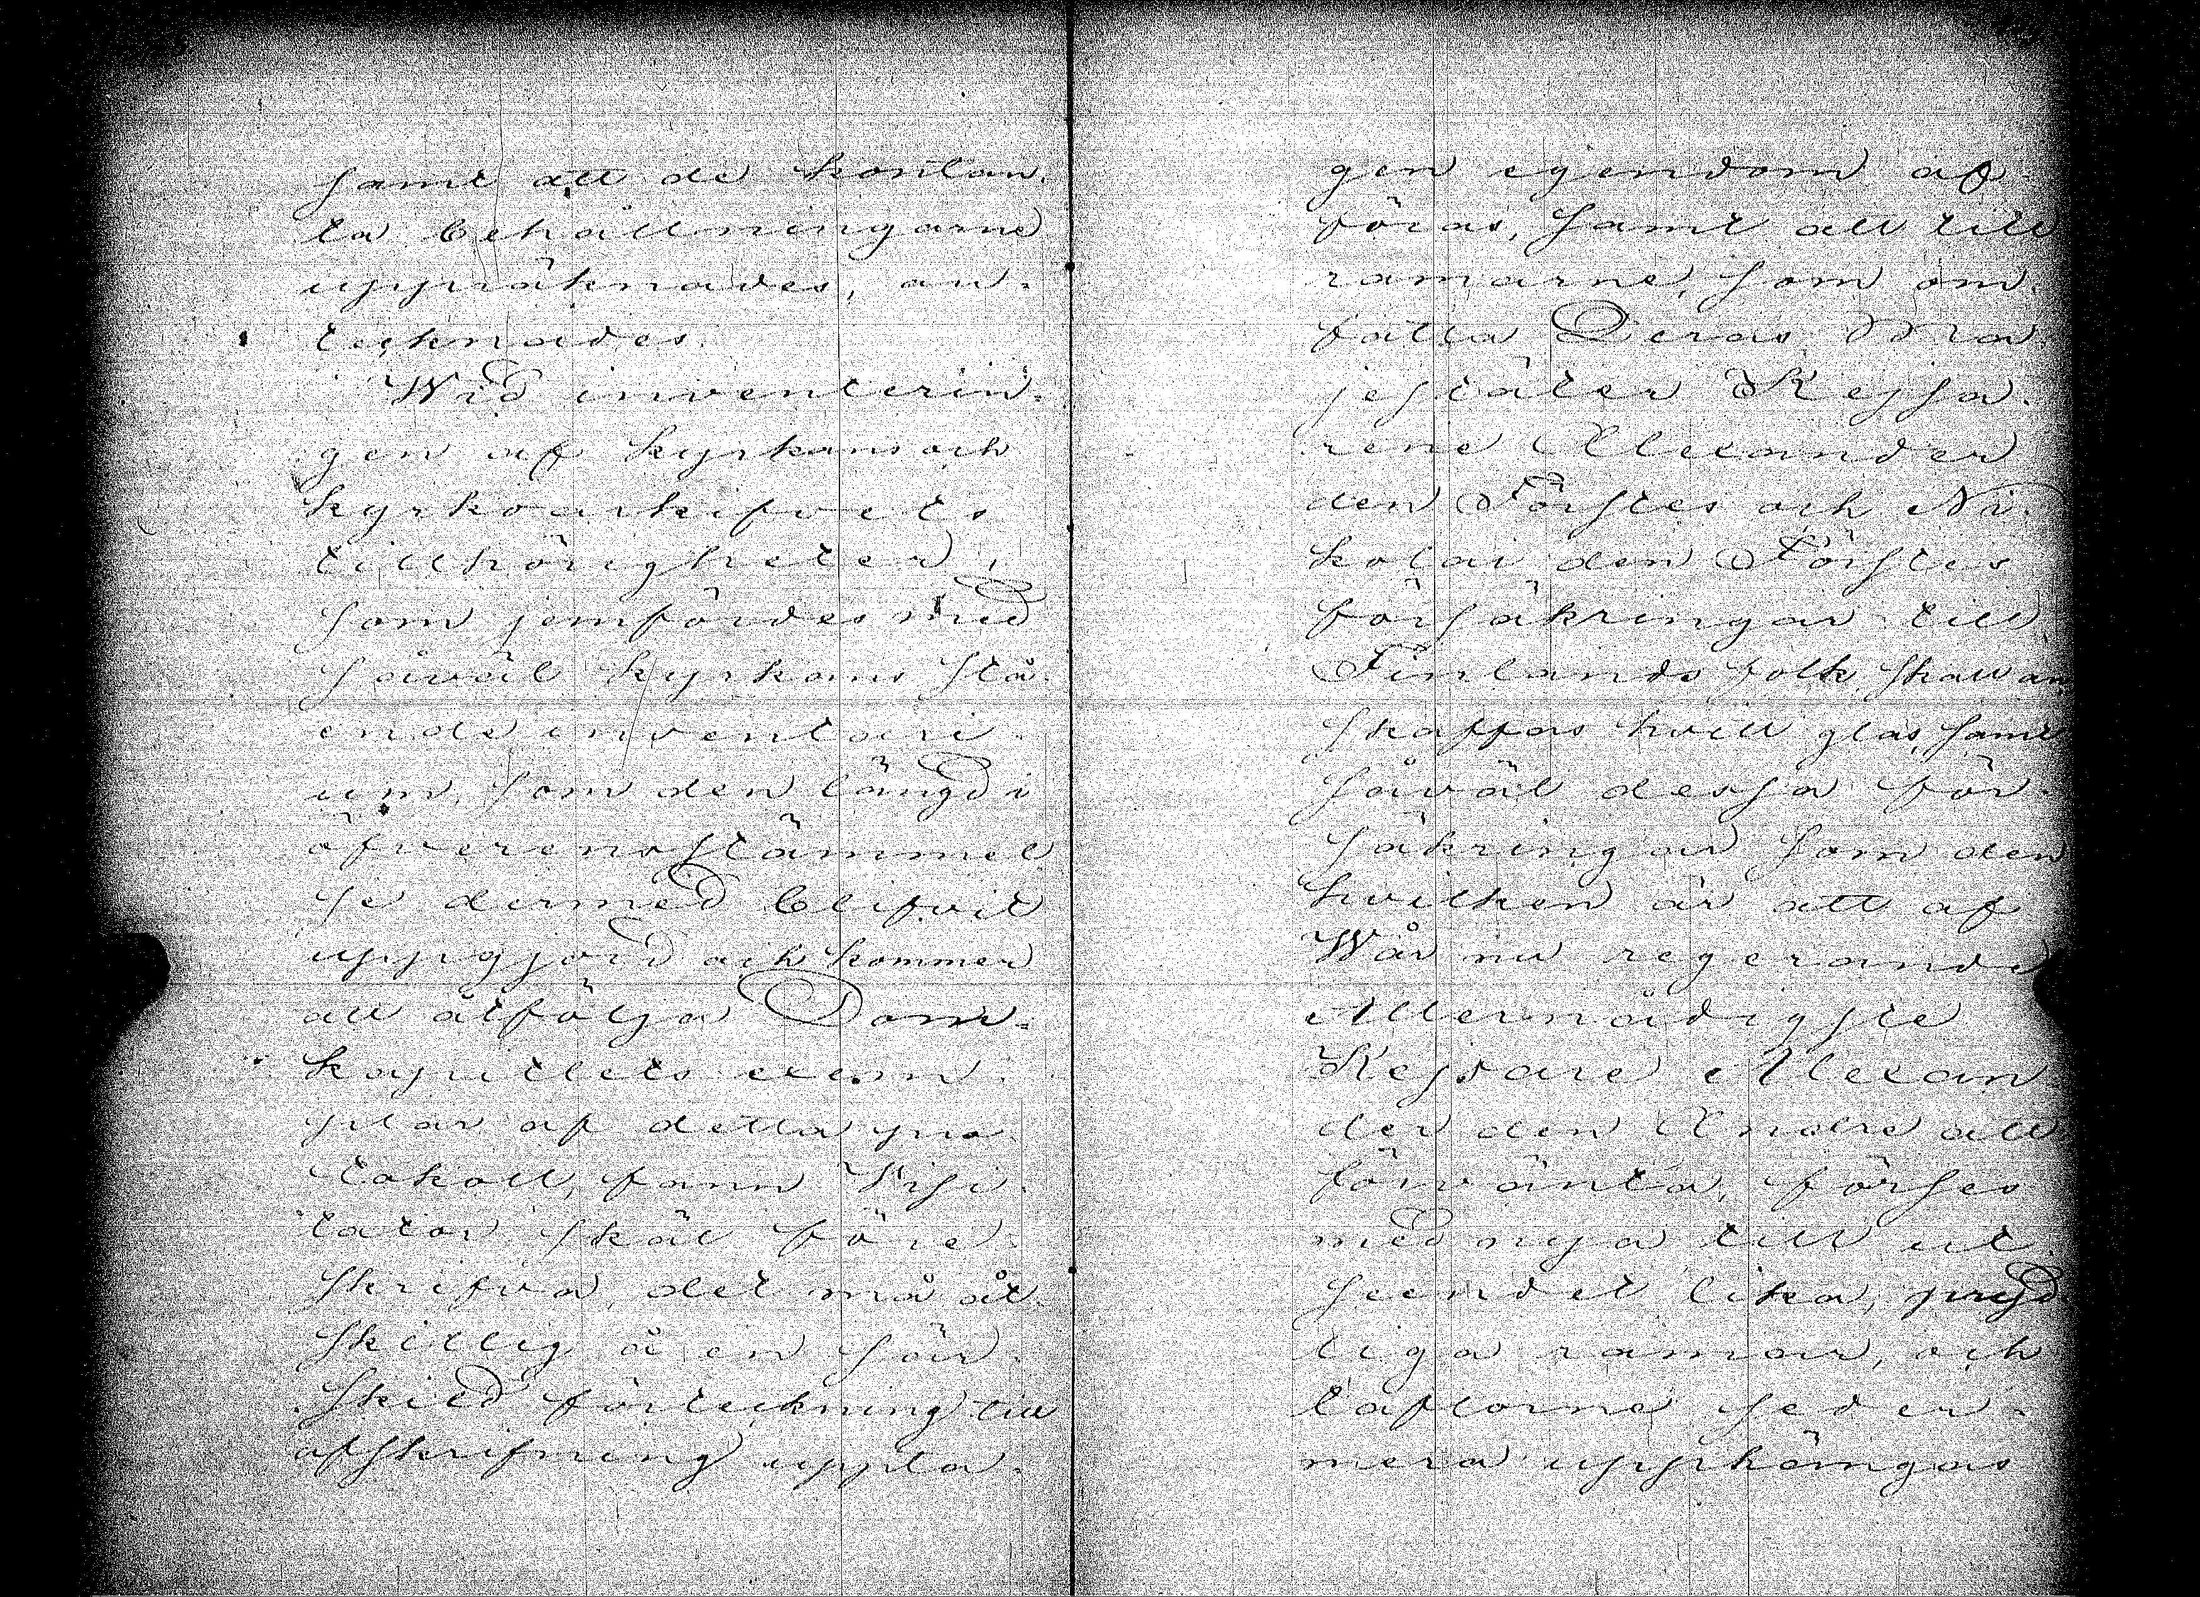 samt att de kontan-
ta behållningarne
uppräknades, an-
tecknades.
Wid inventerin-
gen af kyrkans och
kyrkoarkifvets
tillhörigheter,
som jemfördes med
såväl kyrkans stå-
ende inventari-
um, som den längd i
öfverensstämmel-
se dermed blifvit
uppgjord och kommer
att åtfölja Dom-
kapitlets exem-
plar af detta pro-
tokoll, fann Visi-
tator skäl före-
skrifva, det må åt-
skillig å en sär-
skild förteckning till
afskrifning uppta-
gen egendom af-
föras, samt att till
ramarne, som om-
fatta Deras Ma-
jestäter Kejsa-
rene Alexander
den Förstes och Ni-
kolai den Förstes
försäkringar till
Finlands folk, skall an-
skaffas hvitt glas, samt
såväl dessa för-
säkringar som den
hvilken är att af
Wår nu regerande
Allernådigste
Kejsare Alexan-
der den Andre att
förvänta, förses
med nya till ut-
seendet lika, pryd-
liga ramar, och
taflorne seder-
mera upphängas